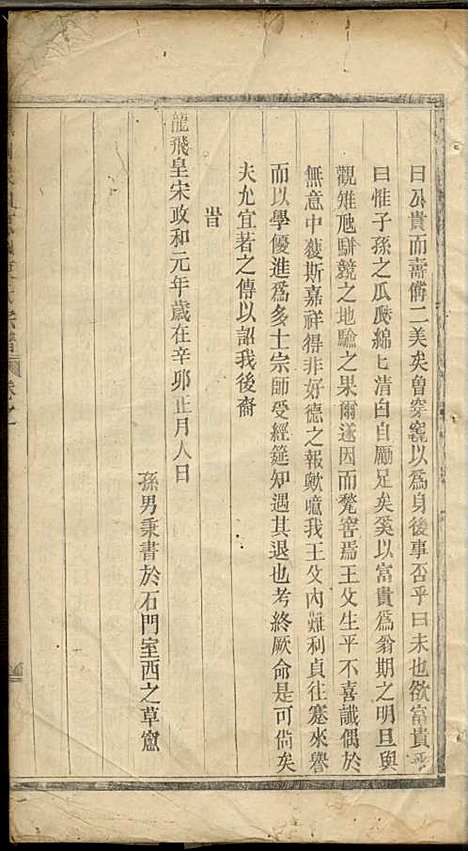 曰公貴而壽備二美矣曾穿窀以爲身後事否乎曰未也欲富貴乎
曰惟子孫之瓜瓞綿匕清白自勵足矣奚以富貴爲翁期之明旦與
觀雉虺駢競之地驗之果爾遂因而甃窖焉王父生平不喜讖偶於
無意中獲斯嘉祥得非好德之報歟噫我王父內難利貞往蹇來譽
而以學優進爲多士宗師受經筵知遇其退也考終厥命是可尙矣
夫允宜著之傳以詔我後裔
旹
龍飛皇宋政和元年歲在辛卯正月人日
孫男秉書於石門室西之草窻